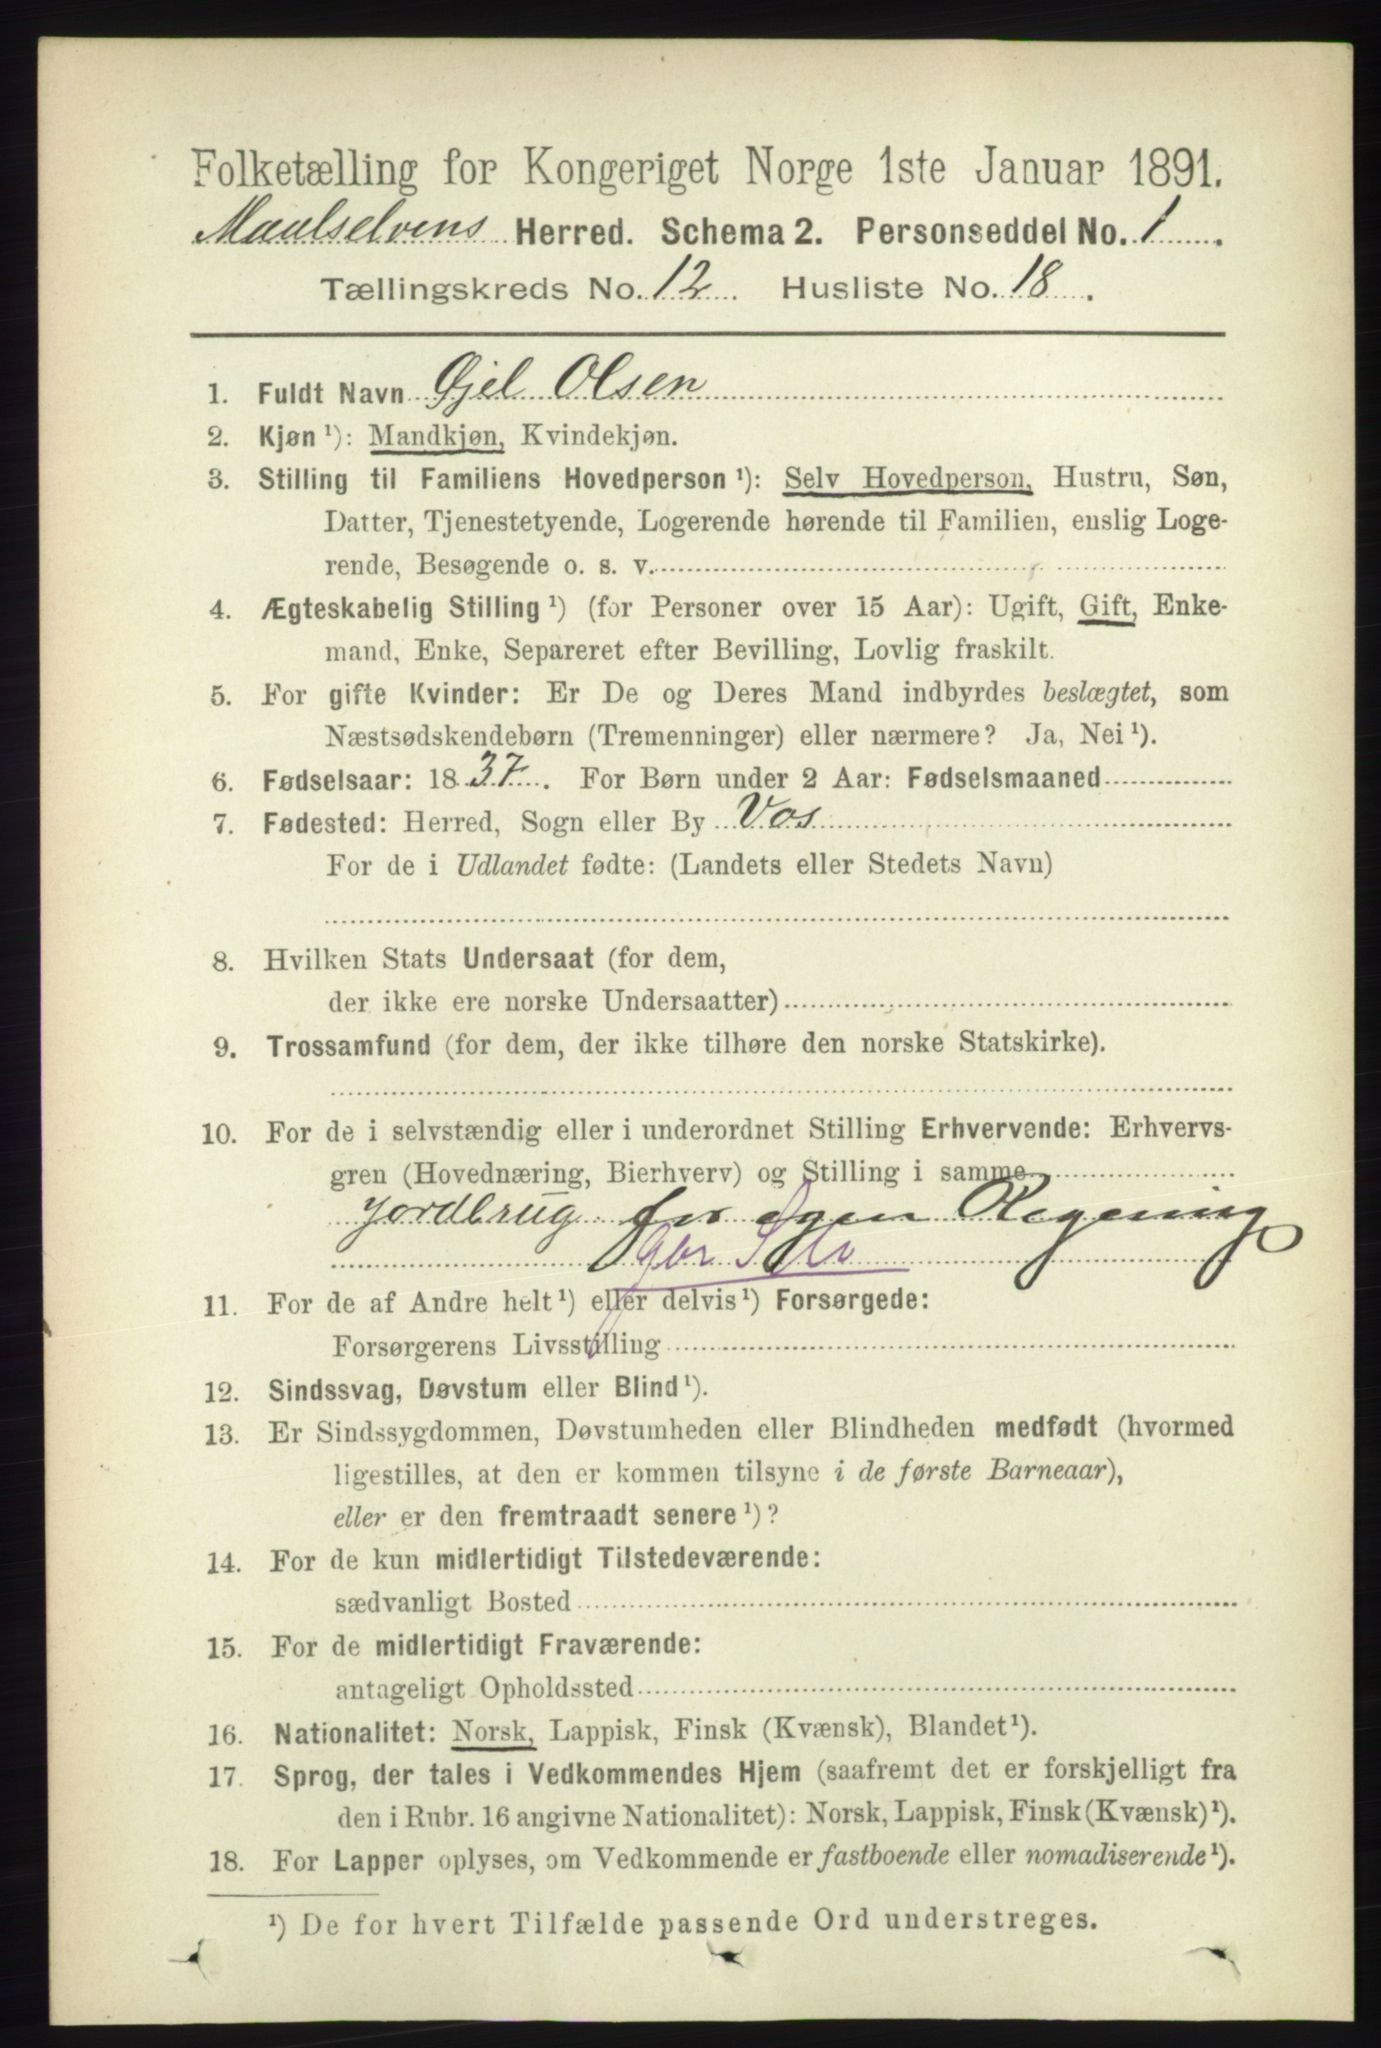 Folketælling for Kongeriget Norge 1ste Januar 1891.
Maalselvens Herred. Schema 2. Personseddel No. 1.
Tællingskreds No. 12. Husliste No. 18.
1. Fuldt Navn Gjel Olsen
2. Kjøn ¹): Mandkjøn, Kvindekjøn.
3. Stilling til Familiens Hovedperson ¹): Selv Hovedperson, Hustru, Søn,
Datter, Tjenestetyende, Logerende hørende til Familien, enslig Loge-
rende, Besøgende o. s. v.
4. Ægteskabelig Stilling ¹) (for Personer over 15 Aar): Ugift, Gift, Enke-
mand, Enke, Separeret efter Bevilling, Lovlig fraskilt.
5. For gifte Kvinder: Er De og Deres Mand indbyrdes beslægtet, som
Næstsødskendebørn (Tremenninger) eller nærmere? Ja, Nei ¹).
6. Fødselsaar: 1837. For Børn under 2 Aar: Fødselsmaaned
7. Fødested: Herred, Sogn eller By Vos
For de i Udlandet fødte: (Landets eller Stedets Navn)
8. Hvilken Stats Undersaat (for dem,
der ikke ere norske Undersaatter)
9. Trossamfund (for dem, der ikke tilhøre den norske Statskirke).
10. For de i selvstændig eller i underordnet Stilling Erhvervende: Erhvervs-
gren (Hovednæring, Bierhverv) og Stilling i samme
Jordbrug for egen Regning
11. For de af Andre helt ¹) eller delvis ¹) Forsørgede:
Forsørgerens Livsstilling
12. Sindssvag, Døvstum eller Blind ¹).
13. Er Sindssygdommen, Døvstumheden eller Blindheden medfødt (hvormed
ligestilles, at den er kommen tilsyne i de første Barneaar),
eller er den fremtraadt senere ¹)?
14. For de kun midlertidigt Tilstedeværende:
sædvanligt Bosted
15. For de midlertidigt Fraværende:
antageligt Opholdssted
16. Nationalitet: Norsk, Lappisk, Finsk (Kvænsk), Blandet ¹).
17. Sprog, der tales i Vedkommendes Hjem (saafremt det er forskjelligt fra
den i Rubr. 16 angivne Nationalitet): Norsk, Lappisk, Finsk (Kvænsk) ¹).
18. For Lapper oplyses, om Vedkommende er fastboende eller nomadiserende ¹).
¹) De for hvert Tilfælde passende Ord understreges.